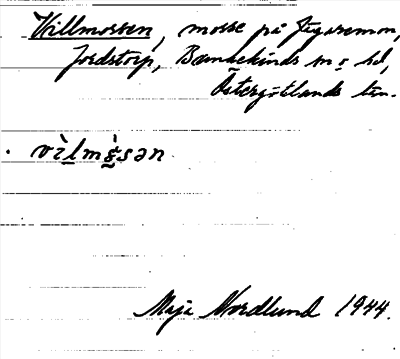 Willmossen, mosse på Tigaremon,
Jordstorp, Bankekinds sn o hd,
Östergötlands län.
vìlmòsən
Maja Nordlund 1944.